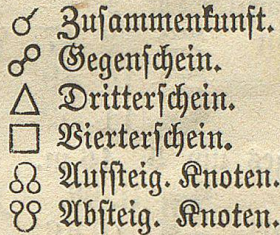 ☌ Zusammenkunft.
☍ Gegenschein.
△ Dritterschein.
□ Vierterschein.
☊ Aufsteig. Knoten.
☋ Absteig. Knoten.